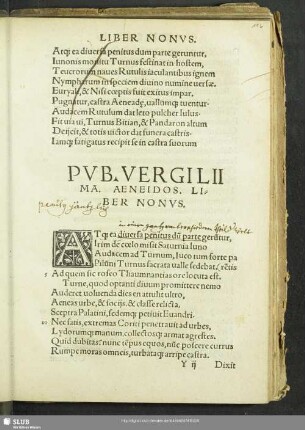 LIBER NONVS.
Atq; ea diuersa penitus dum parte geruntur,
Iunonis monitu Turnus festinat in hostem,
Teucrorum naues Rutulis iaculantibus ignem
Nympharum in speciem diuino numine uersæ.
Euryali, & Nisi cœptis fuit exitus impar.
Pugnatur, castra Aeneadę, uallumq; tuentur.
Audacem Rutulum dat leto pulcher Iulus.
Fit uia ui, Turnus Bitian, & Pandaron altum
Deijcit, & totis uictor dat funera castris.
Iamq; fatigatus recipit se in castra suorum
PVB. VERGILII
MA. AENEIDOS. LI-
BER NONVS.
penitus
ATq; ea diuersa penitus dū parte gerūtur,
Irim de cœlo misit Saturnia Iuno
Audacem ad Turnum, luco tum forte pa
Pilūni Turnus sacrata ualle sedebat, rētis
5 Ad quem sic roseo Thaumantias ore locuta est.
Turne, quod optanti diuum promittere nemo
Auderet uoluenda dies en attulit ultro,
Aeneas urbe, & socijs, & classe relicta,
Sceptra Palatini, sedemq; petiuit Euandri.
10 Nec satis, extremas Coriti penetrauit ad urbes,
Lydorumq; manum, collectosq; armat agrestes.
Quid dubitas? nunc tēpus equos, nūc poscere currus
Rumpe moras omneis, turbataq; arripe castra.
Y ij Dixit
SLUB